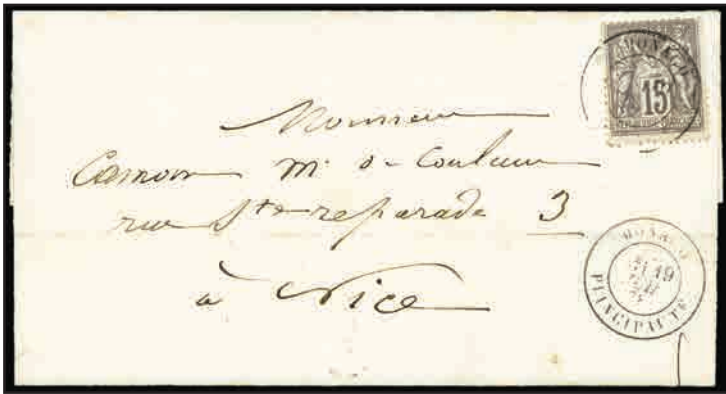 MONACO
15
Monsieur
Camous Md de Couleurs
rue Ste reparade 3
à Nice
MONACO
19
PRINCIPAUTÉ